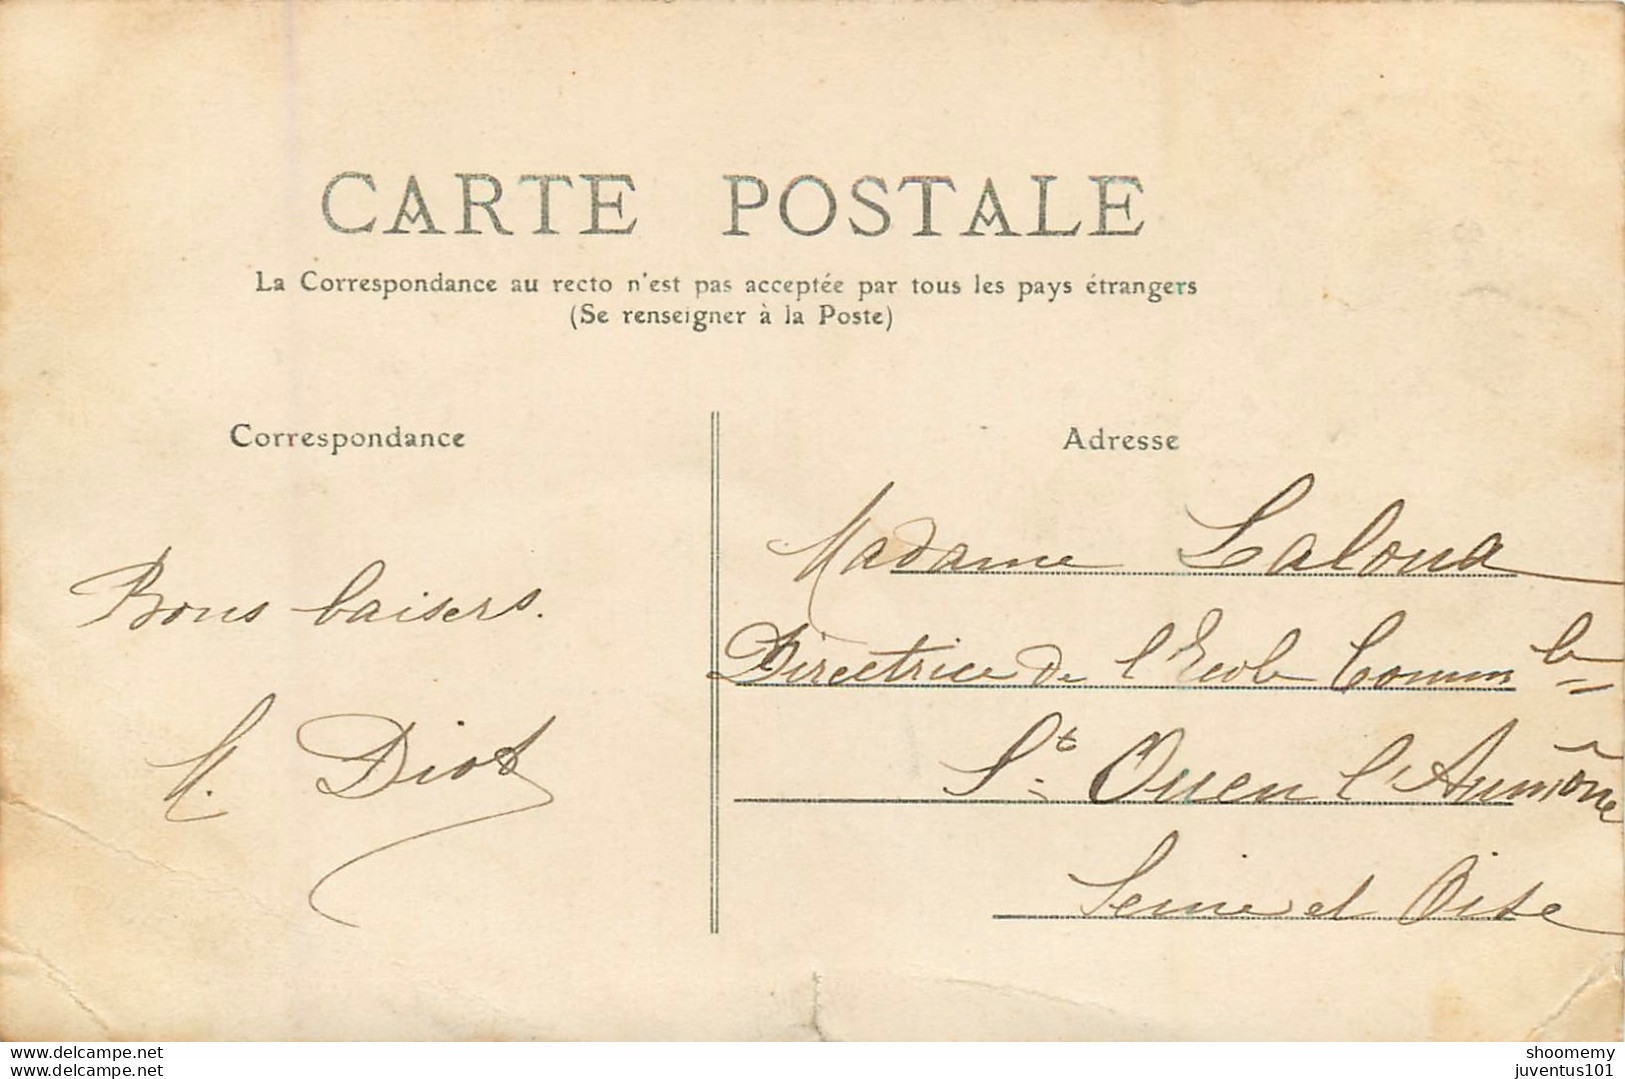 CARTE POSTALE
La Correspondance au recto n'est pas acceptée par tous les pays étrangers
(Se renseigner à la Poste)
Correspondance
Bons baisers.
M. Diot
Adresse
Madame Laloua
Directrice de l'Ecole Comm^le
S^t Ouen l'Aumône
Seine et Oise
www.delcampe.net
www.delcampe.net
shoomemy
juventus101